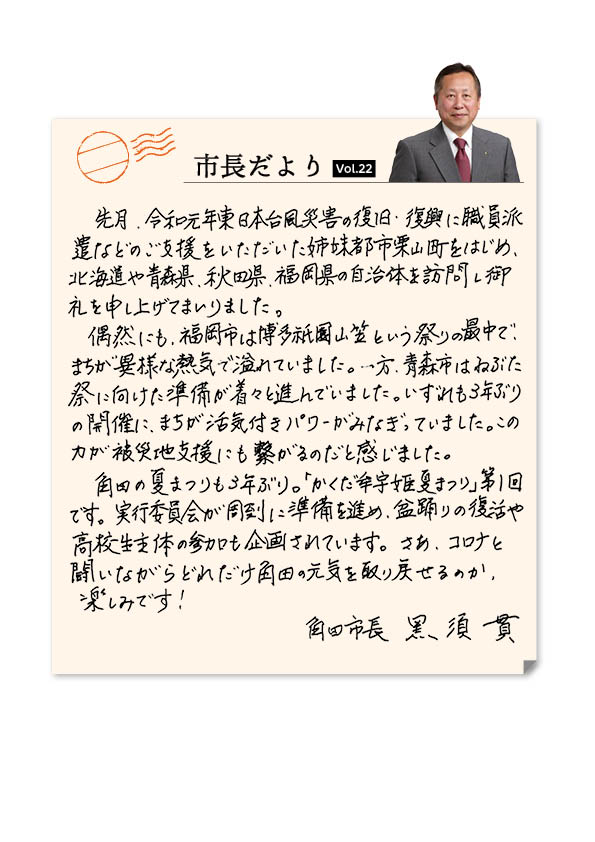 市長だより Vol.22
先月、令和元年東日本台風災害の復旧・復興に職員派
遣などのご支援をいただいた姉妹都市栗山町をはじめ、
北海道や青森県、秋田県、福岡県の自治体を訪問し御
礼を申し上げてまいりました。
偶然にも、福岡市は博多祇園山笠という祭りの最中で、
まちが異様な熱気で溢れていました。一方、青森市はねぶた
祭に向けた準備が着々と進んでいました。いずれも3年ぶり
の開催に、まちが活気付きパワーがみなぎっていました。この
力が被災地支援にも繋がるのだと感じました。
角田の夏まつりも3年ぶり。「かくだ牟宇姫夏まつり」第1回
です。実行委員会が周到に準備を進め、盆踊りの復活や
高校生主体の参加も企画されています。さあ、コロナと
闘いながらどれだけ角田の元気を取り戻せるのか、
楽しみです！
角田市長 黒須 貫